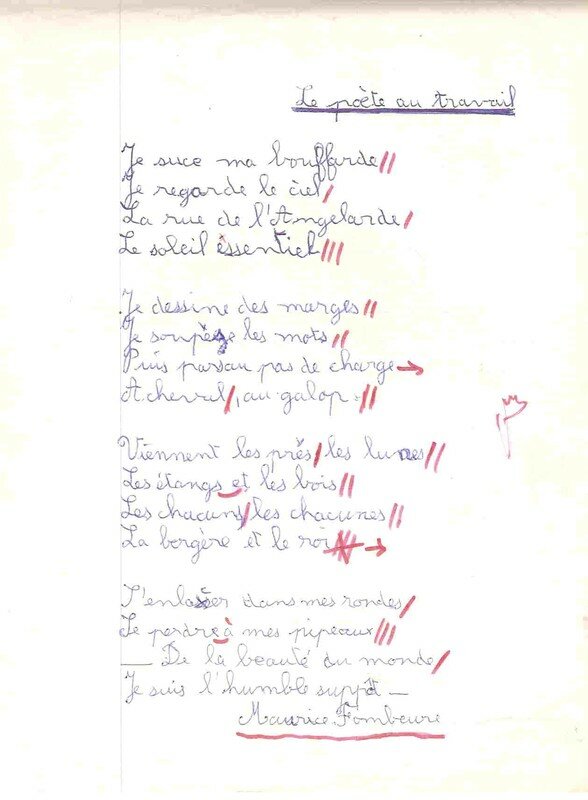 Le poète au travail
Je suce ma bouffarde
Je regarde le ciel
La rue de l'Angelarde
Le soleil essentiel
Je dessine des marges
Je soupèse les mots
Puis parsau pas de charge
A cheval, au galop.
Viennent les prés, les lunes
Les étangs et les bois
Les chacuns, les chacunes
La bergère et le roi
S'enlaser dans mes rondes
Se perdre à mes pipeaux
— De la beauté du monde
Je suis l'humble suppôt —
Maurice Fombeure